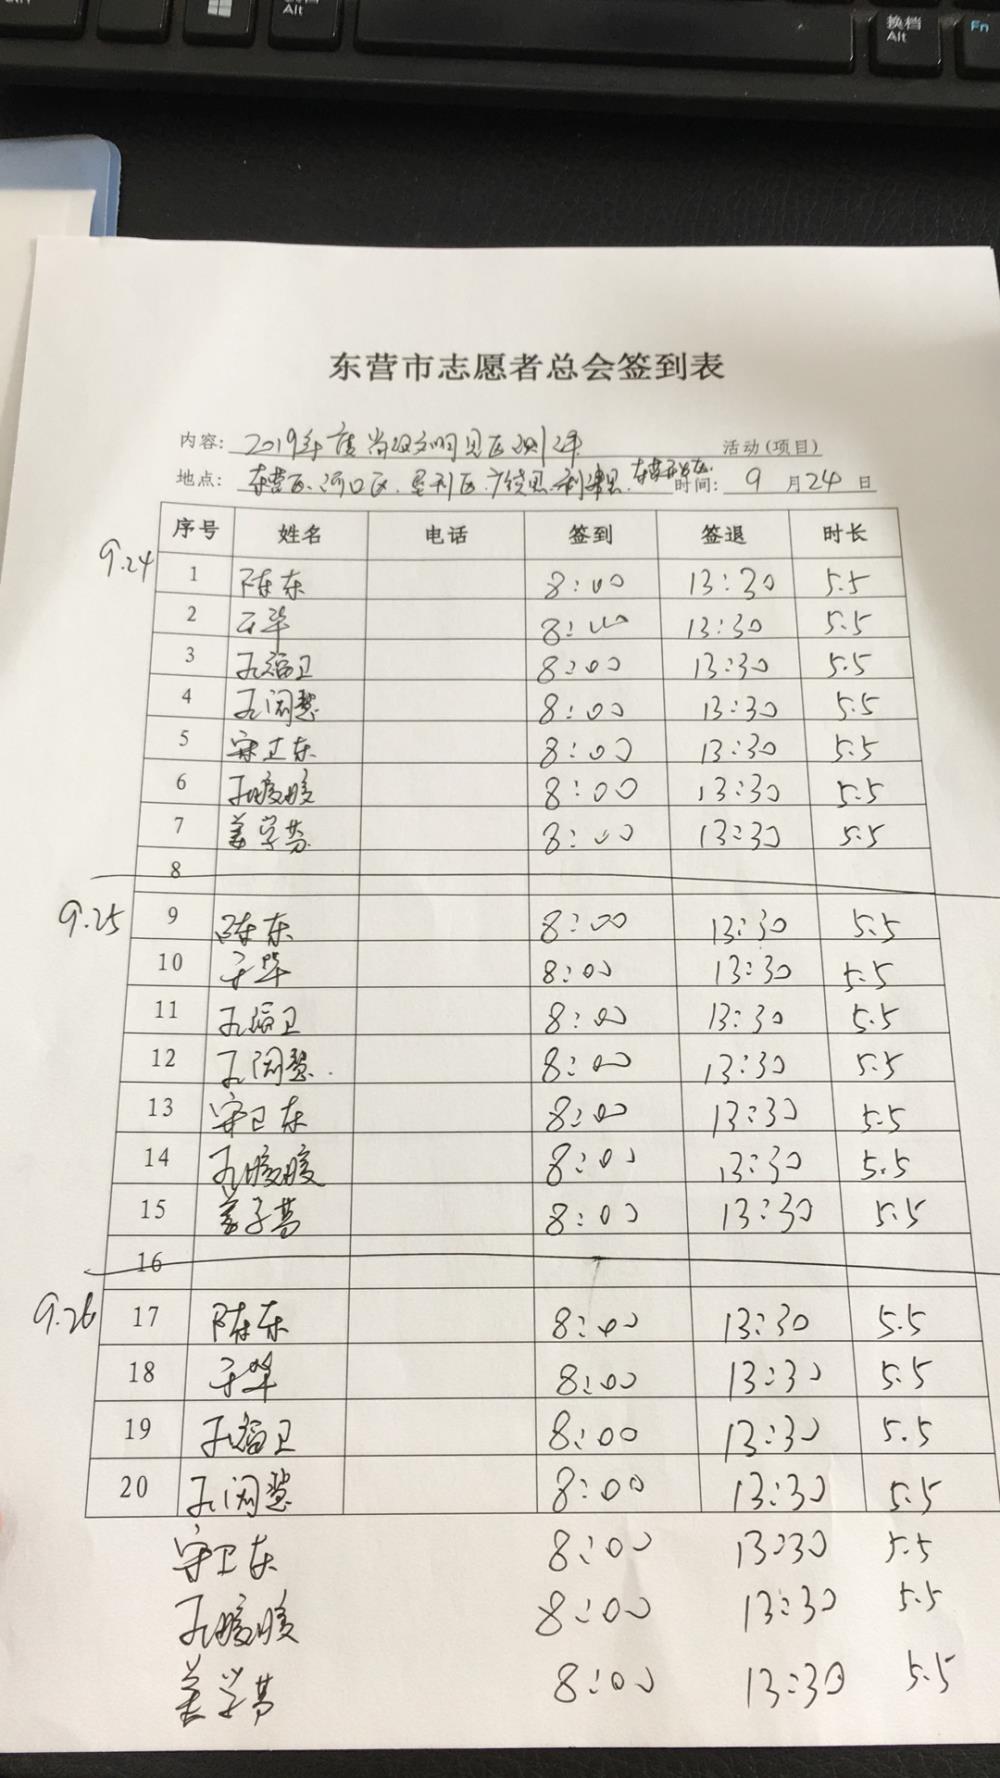 Alt
换档
Alt
Fn
东营市志愿者总会签到表
内容: 2019年度省级文明县区测评 活动(项目)
地点: 东营区、河口区、垦利区、广饶县、利津县、 时间: 9月24日
序号 姓名 电话 签到 签退 时长
9.24
1 陈东 8:00 13:30 5.5
2 于华 8:00 13:30 5.5
3 孔福卫 8:00 13:30 5.5
4 孔闵慧 8:00 13:30 5.5
5 宋卫东 8:00 13:30 5.5
6 孔晓晓 8:00 13:30 5.5
7 8:00 13:30 5.5
8
9.25
9 陈东 8:00 13:30 5.5
10 于华 8:00 13:30 5.5
11 孔福卫 8:00 13:30 5.5
12 孔闵慧 8:00 13:30 5.5
13 宋卫东 8:00 13:30 5.5
14 孔晓晓 8:00 13:30 5.5
15 8:00 13:30 5.5
16
9.26
17 陈东 8:00 13:30 5.5
18 于华 8:00 13:30 5.5
19 孔福卫 8:00 13:30 5.5
20 孔闵慧 8:00 13:30 5.5
宋卫东 8:00 13:30 5.5
孔晓晓 8:00 13:30 5.5
8:00 13:30 5.5